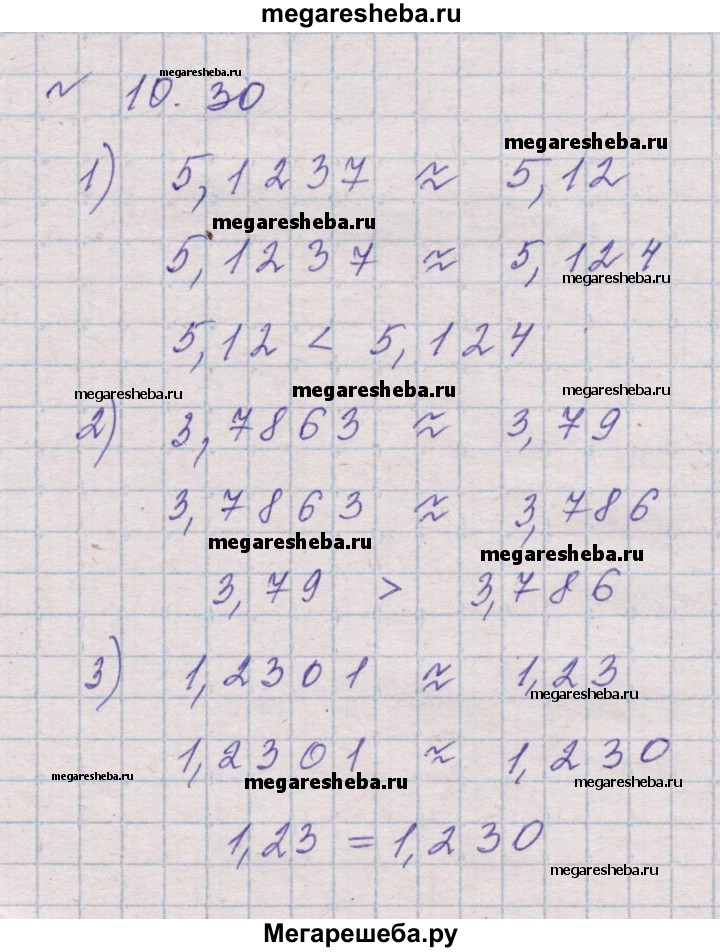 megaresheba.ru
megaresheba.ru
~ 10.30
megaresheba.ru
megaresheba.ru
1) 5,1237 ≈ 5,12
megaresheba.ru
5,1237 ≈ 5,124
megaresheba.ru
5,12 < 5,124
megaresheba.ru
megaresheba.ru
megaresheba.ru
2) 3,7863 ≈ 3,79
3,7863 ≈ 3,786
megaresheba.ru
megaresheba.ru
3,79 > 3,786
3) 1,2301 ≈ 1,23
megaresheba.ru
1,2301 ≈ 1,230
megaresheba.ru
megaresheba.ru
megaresheba.ru
1,23 = 1,230
megaresheba.ru
Мегарешеба.ру